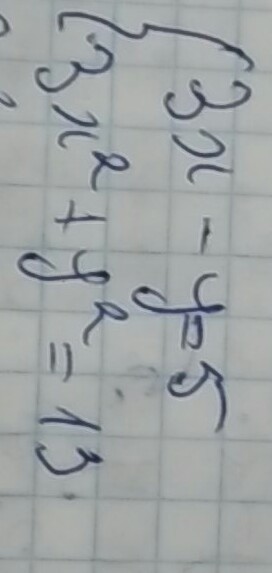 3x - y = 5
3x² + y² = 13